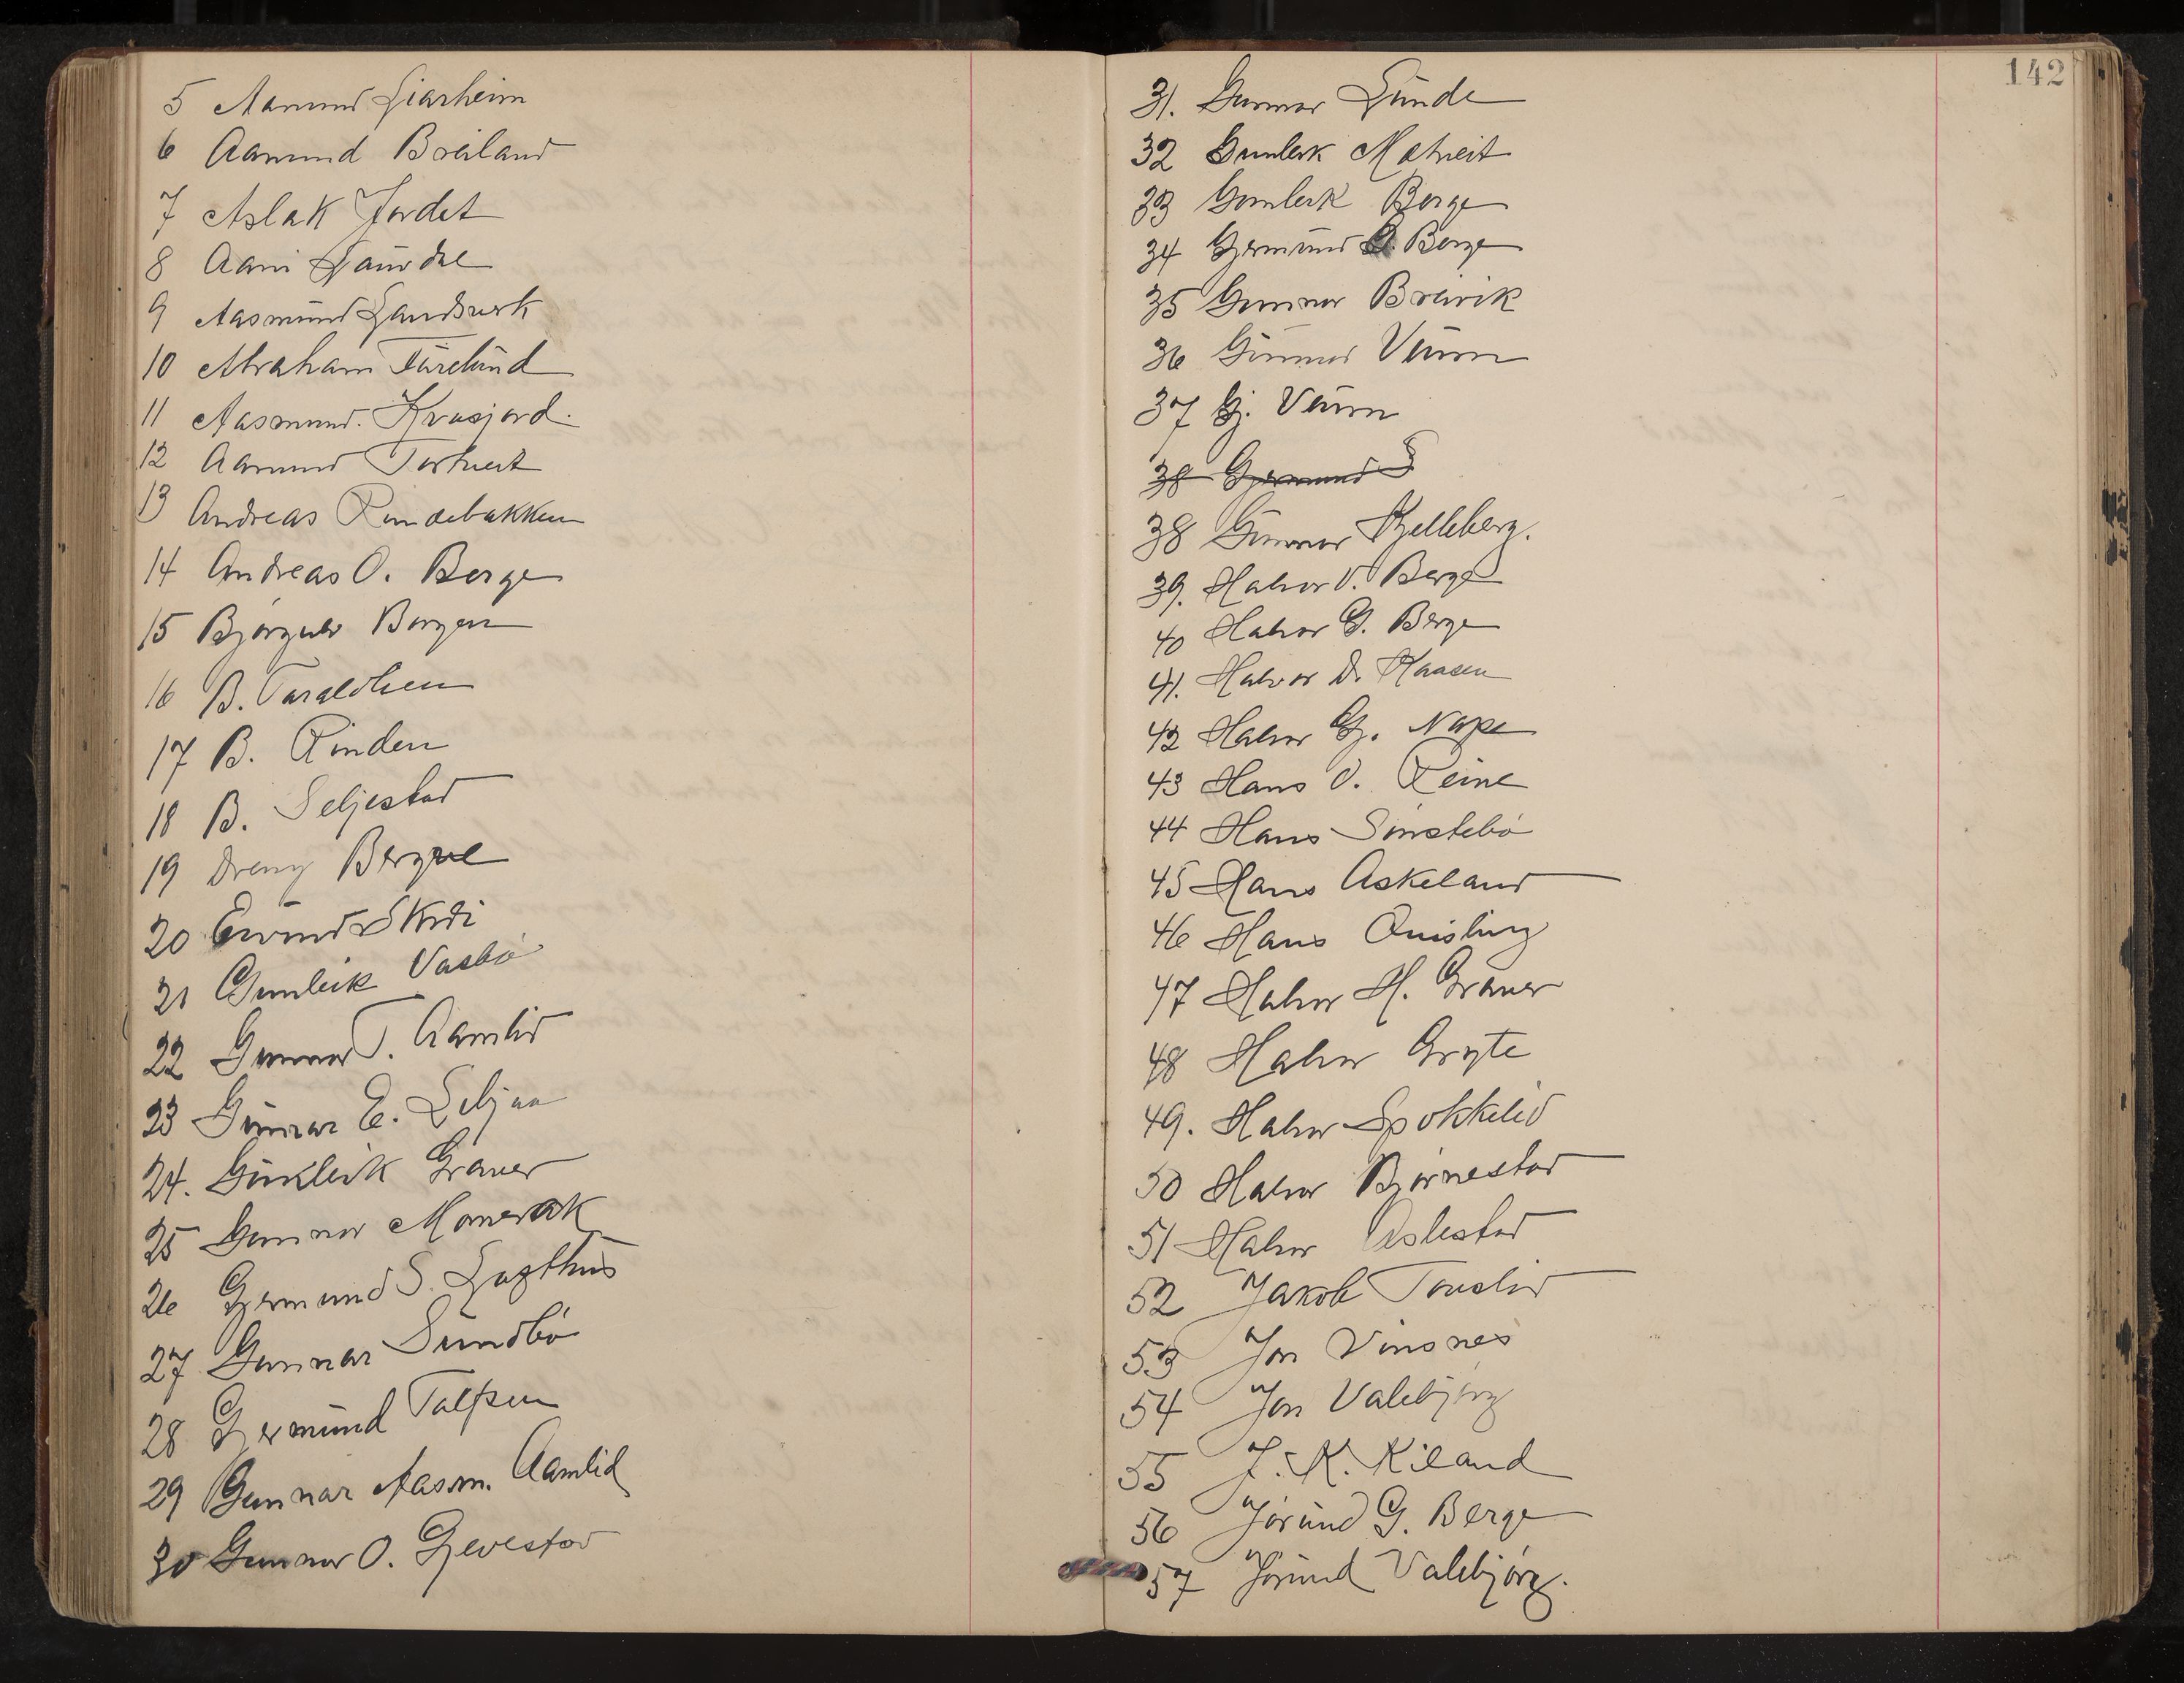 5 Aamund Liarheim
6 Aamund Breiland
7 Aslak Jordet
8 Aani Laurdal
9 Aasmund Landsverk
10 Abraham Turelund
11 Aasmund. Kvasjord.
12 Aamund Tortveit
13 Andreas Rundebakken
14 Andreas O. Berge
15 Bjørgulv Borgen
16 B. Taraldlien
17 B. Rinden
18 B. Seljestad
19 Dreng Berge
20 Eivind Skrdi
21 Gunleik Vasbø
22 Gunnar T. Aamlid
23 Gunnar E. Liljaa
24. Gunleik Graver
25 Gunnar Momrak
26 Gjermund S. Lagthus
27 Gunnar Sundbø
28 Gjermund Talfsen
29 Gunnar Aasm. Aamlid
30 Gunnar O. Gjevestad
142
31. Gunnar Lunde
32 Gunleik Motveit
33 Gunleik Berge
34 Gjermund G. Berge
35 Gunnar Breivik
36 Gunnar Veum
37 Gj. Veum
38 Gjermund S
38 Gunnar Kjelleberg.
39. Halvor O. Berge
40 Halvor G. Berge
41. Halvor D. Kaasen
42 Halvor Gj. Nape
43 Hans O. Reine
44 Hans Sinstebø
45 Hans Askeland
46 Hans Quisling
47 Halvor H. Graver
48 Halvor Gryte
49. Halvor Spokkelid
50 Halvor Bjørnestad
51 Halvor Aslestad
52 Jakob Tonslid
53 Jon Vinsnes
54 Jon Valebjørg
55 J. K. Kiland
56 Jørund G. Berge
57 Jørund Valebjørg.